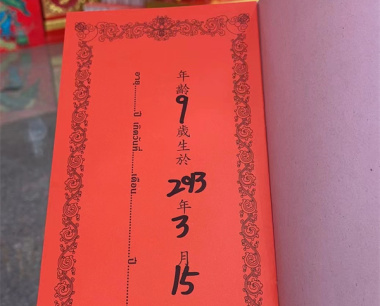 年齡9歲生於293年3月15
อายุ..........ปี เกิดวันที่..........เดือน....................ปี